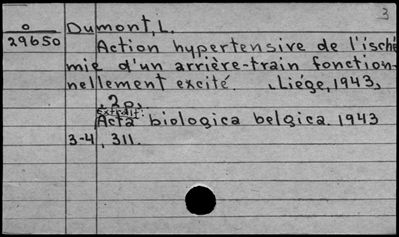 3
o Dumont, L.
29650
Action hypertensive de l'isché
mie d'un arrière-train fonction-
nellement excité. Liége, 1943,
, 2 p,
extrait:
Acta biologica belgica. 1943
3-4, 311.